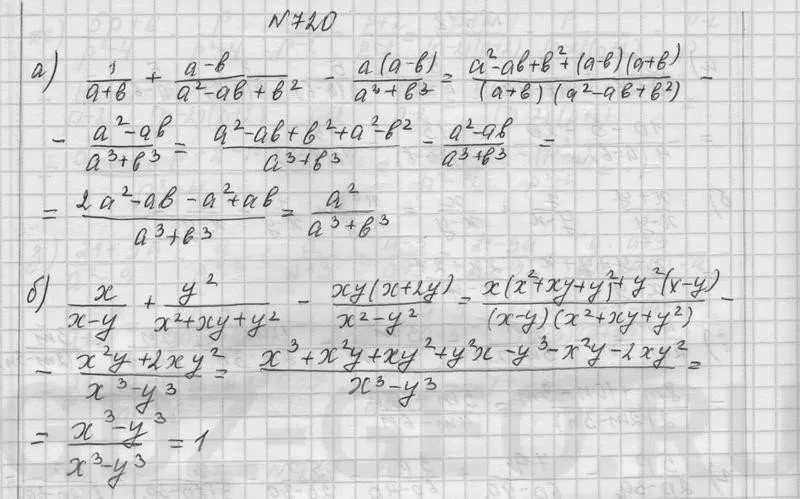 №720
а) 1/(a+в) + (a-в)/(a²-aв+в²) - a(a-в)/(a³+в³) = (a²-aв+в²+(a-в)(a+в))/((a+в)(a²-aв+в²)) -
- (a²-aв)/(a³+в³) = (a²-aв+в²+a²-в²)/(a³+в³) - (a²-aв)/(a³+в³) =
= (2a²-aв-a²+aв)/(a³+в³) = a²/(a³+в³)
б) x/(x-y) + y²/(x²+xy+y²) - xy(x+2y)/(x²-y²) = (x(x²+xy+y²)+y²(x-y))/((x-y)(x²+xy+y²)) -
- (x²y+2xy²)/(x³-y³) = (x³+x²y+xy²+y²x-y³-x²y-2xy²)/(x³-y³) =
= (x³-y³)/(x³-y³) = 1